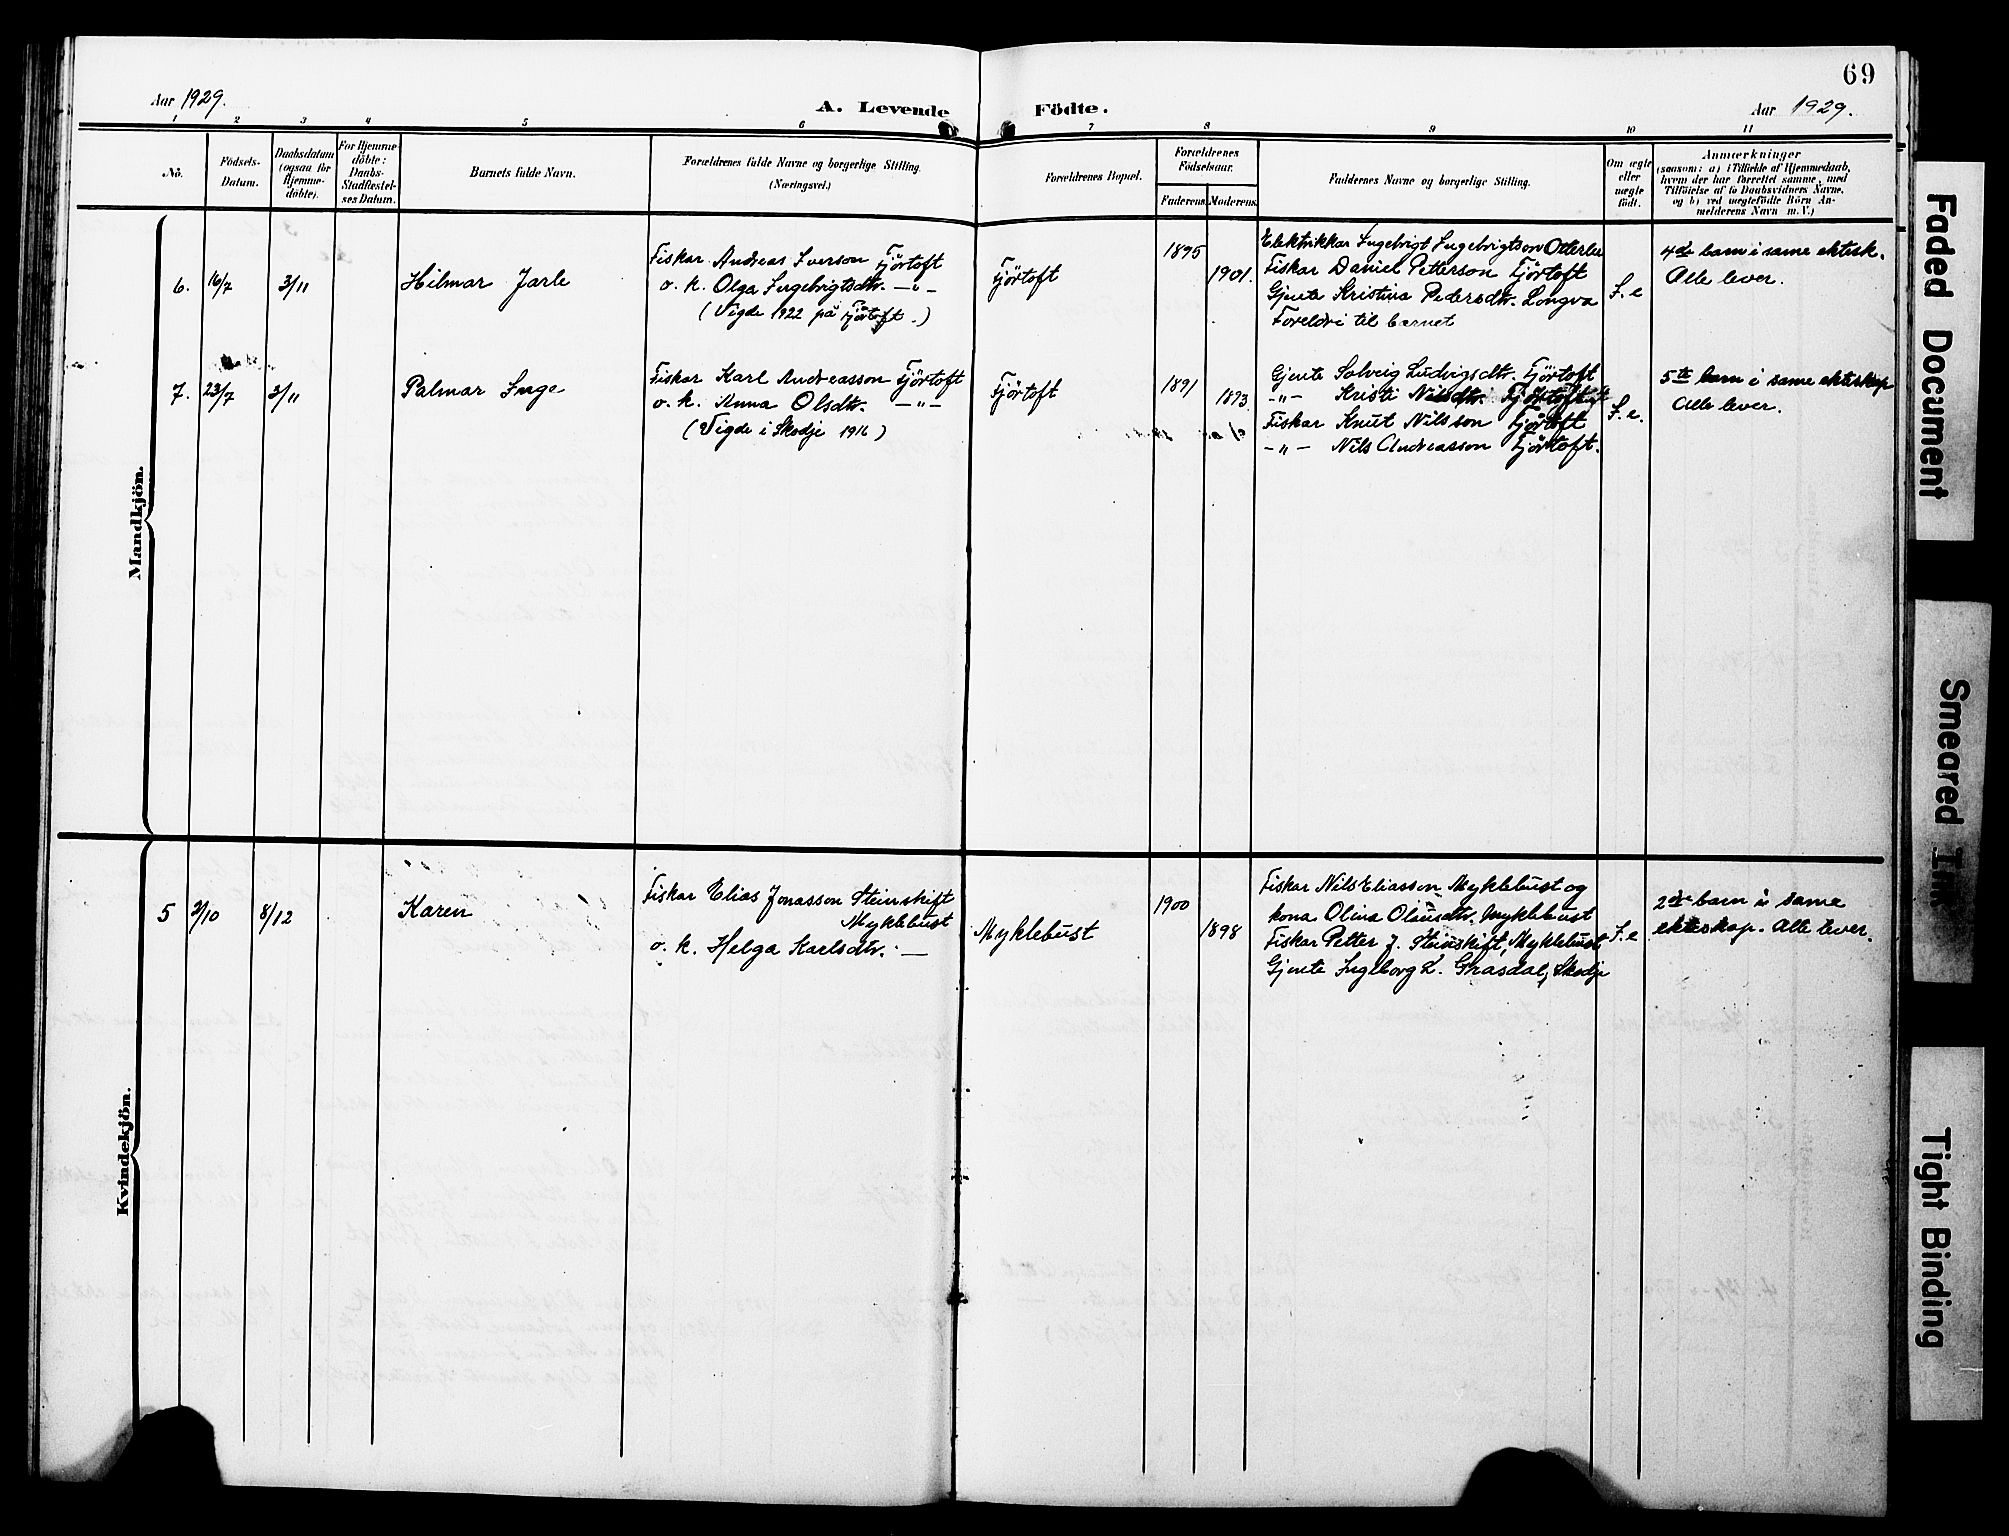 69
Aar 1929.
A. Levende Födte.
Aar 1929.
1 2 3 4 5 6 7 8 9 10 11
No.
Födsels-
Datum.
Daabsdatum
(ogsaa for
Hjemme-
döbte).
For Hjemme-
döbte:
Daabs-
Stadfæstel-
ses Datum.
Barnets fulde Navn.
Forældrenes fulde Navne og borgerlige Stilling.
(Næringsvei.)
Forældrenes Bopæl.
Forældrenes
Födselsaar.
Faderens. Moderens.
Faddernes Navne og borgerlige Stilling.
Om ægte
eller
uægte
født.
Anmærkninger
(saasom: a) i Tilfælde af Hjemmedaab,
hvem der har forrettet samme, med
Tilföielse af to Daabsvidners Navne,
og b) ved uægtefödte Börn An-
melderens Navn m. V.)
Mandkjön.
6. 16/7 3/11 Hilmar Jarle
Fiskar Andreas Iverson Fjörtoft
o. k. Olga Ingebrigtsdtr. —"—
(Vigde 1922 på Fjörtoft.)
Fjörtoft
1895
1901.
Elektrikkar Ingebrigt Ingebrigtson Otterlei
Fiskar Daniel Petterson Fjörtoft
Gjente Kristina Pedersdtr. Longva
Foreldri til barnet
F. e
4de barn i same ektesk.
Alle lever.
7. 23/7 3/11 Palmar Inge
Fiskar Karl Andreasson Fjörtoft
o. k. Anna Olsdtr. —"—
(Vigde i Skodje 1916)
Fjörtoft
1891
1893
Gjente Solveig Ludvigsdtr. Fjörtoft
—"— Kristi Nilsdtr. Fjörtoft
Fiskar Knut Nilsson Fjörtoft
—"— Nils Andreasson Fjörtoft.
F. e.
5te barn i same ekteskap
Alle lever.
Kvindekjön.
5 3/10 8/12 Karen
Fiskar Elias Jonasson Steinskift
Myklebust
o. k. Helga Karlsdtr. —
Myklebust
1900
1898
Fiskar Nils Eliasson Myklebust og
kona Olina Olausdtr. Myklebust
Fiskar Petter J. Steinskift, Myklebust
Gjente Ingeborg L. Grasdal, Skodje
F. e
2dre barn i same
ekteskap. Alle lever.
Faded Document
Smeared Ink
Tight Binding